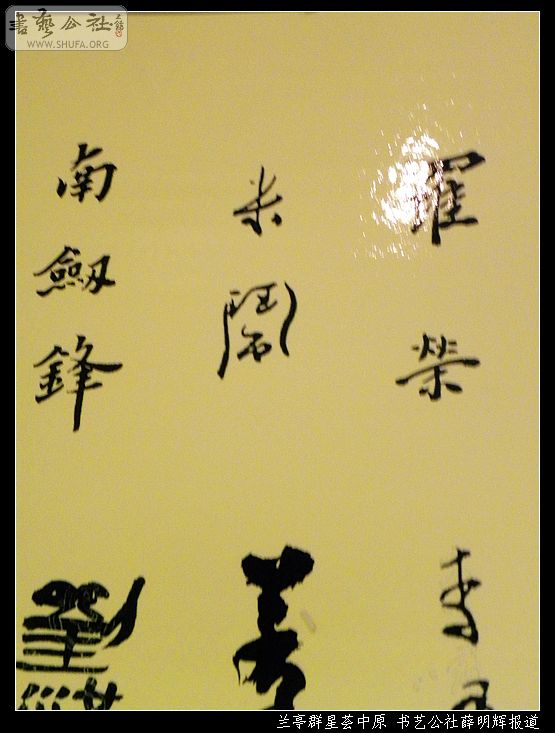 书艺公社
WWW.SHUFA.ORG
羅榮
米鬧
南劔鋒
李
兰亭群星荟中原 书艺公社薛明辉报道